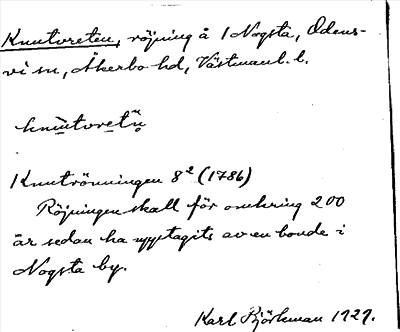 Knutvreten, röjning å 1 Nogsta, Odens-
vi sn, Åkerbo hd, Västmanl. l.
1 Knutrönningen 8² (1786)
Röjningen skall för omkring 200
år sedan ha upptagits av en bonde i
Nogsta by.
Karl Björkman 1929.